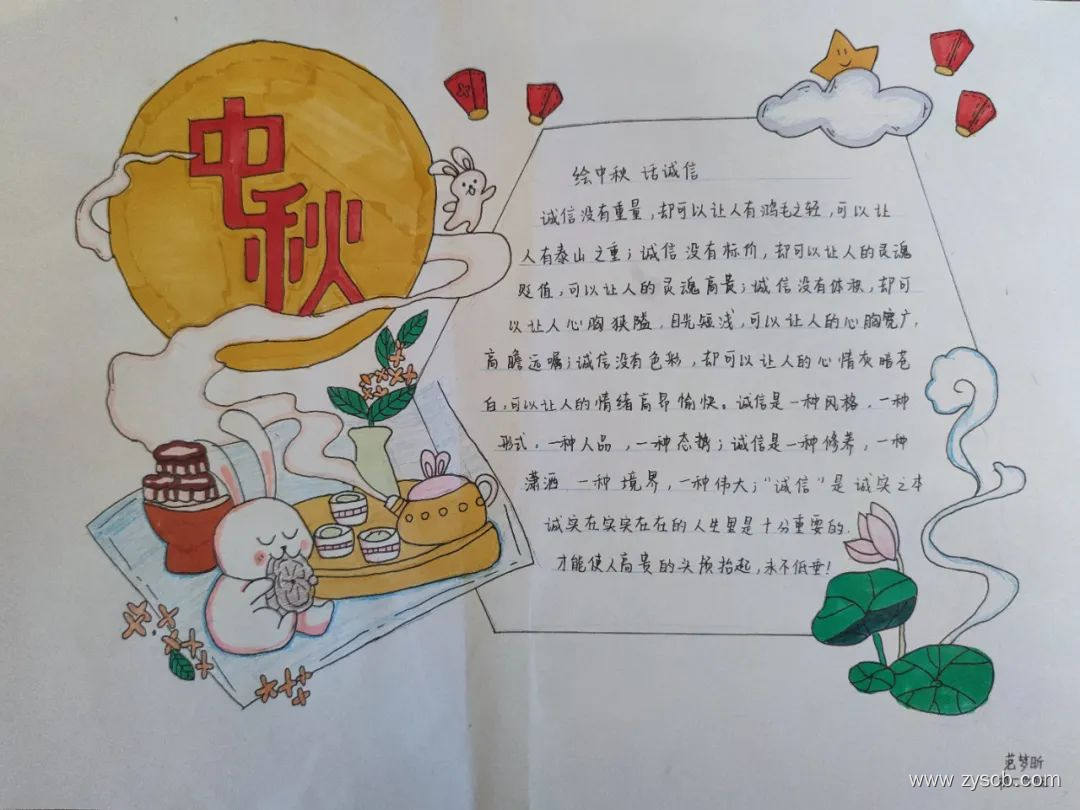 中秋
绘中秋 话诚信
诚信没有重量,却可以让人有鸿毛之轻,可以让
人有泰山之重;诚信没有标价,却可以让人的灵魂
贬值,可以让人的灵魂高贵;诚信没有体积,却可
以让人心胸狭隘,目光短浅,可以让人的心胸宽广,
高瞻远瞩;诚信没有色彩,却可以让人的心情灰暗苍
白,可以让人的情绪高昂愉快。诚信是一种风格,一种
形式,一种人品,一种态势;诚信是一种修养,一种
潇洒 一种境界,一种伟大;“诚信”是诚实之本
诚实在实实在在的人生里是十分重要的.
才能使人高贵的头颅抬起,永不低垂!
范梦昕
www.zyscb.com